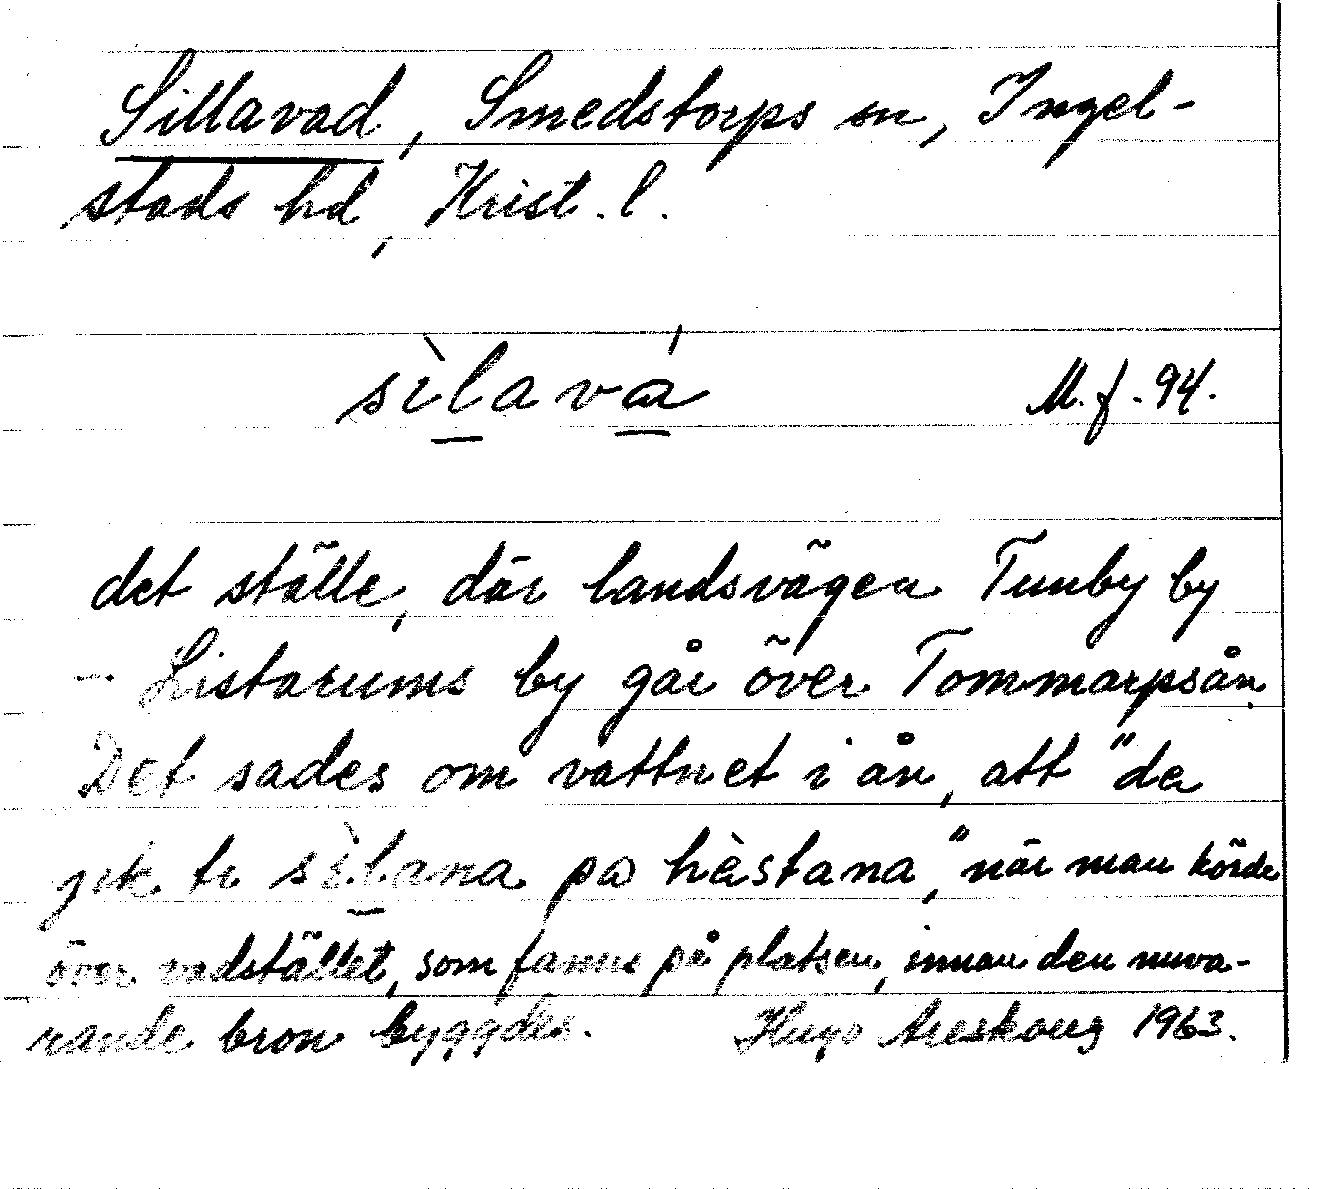 Sillavad, Smedstorps sn, Ingel-
stads hd, Krist. l.
sìlavá
M. f. 94.
det ställe, där landsvägen Tunby by
- Listarums by går över Tommarpsån.
Det sades om vattnet i ån, att "de
jik te sìlana på hèstana", när man körde
över vadstället, som fanns på platsen, innan den nuva-
rande bron byggdes. Hugo Areskoug 1963.